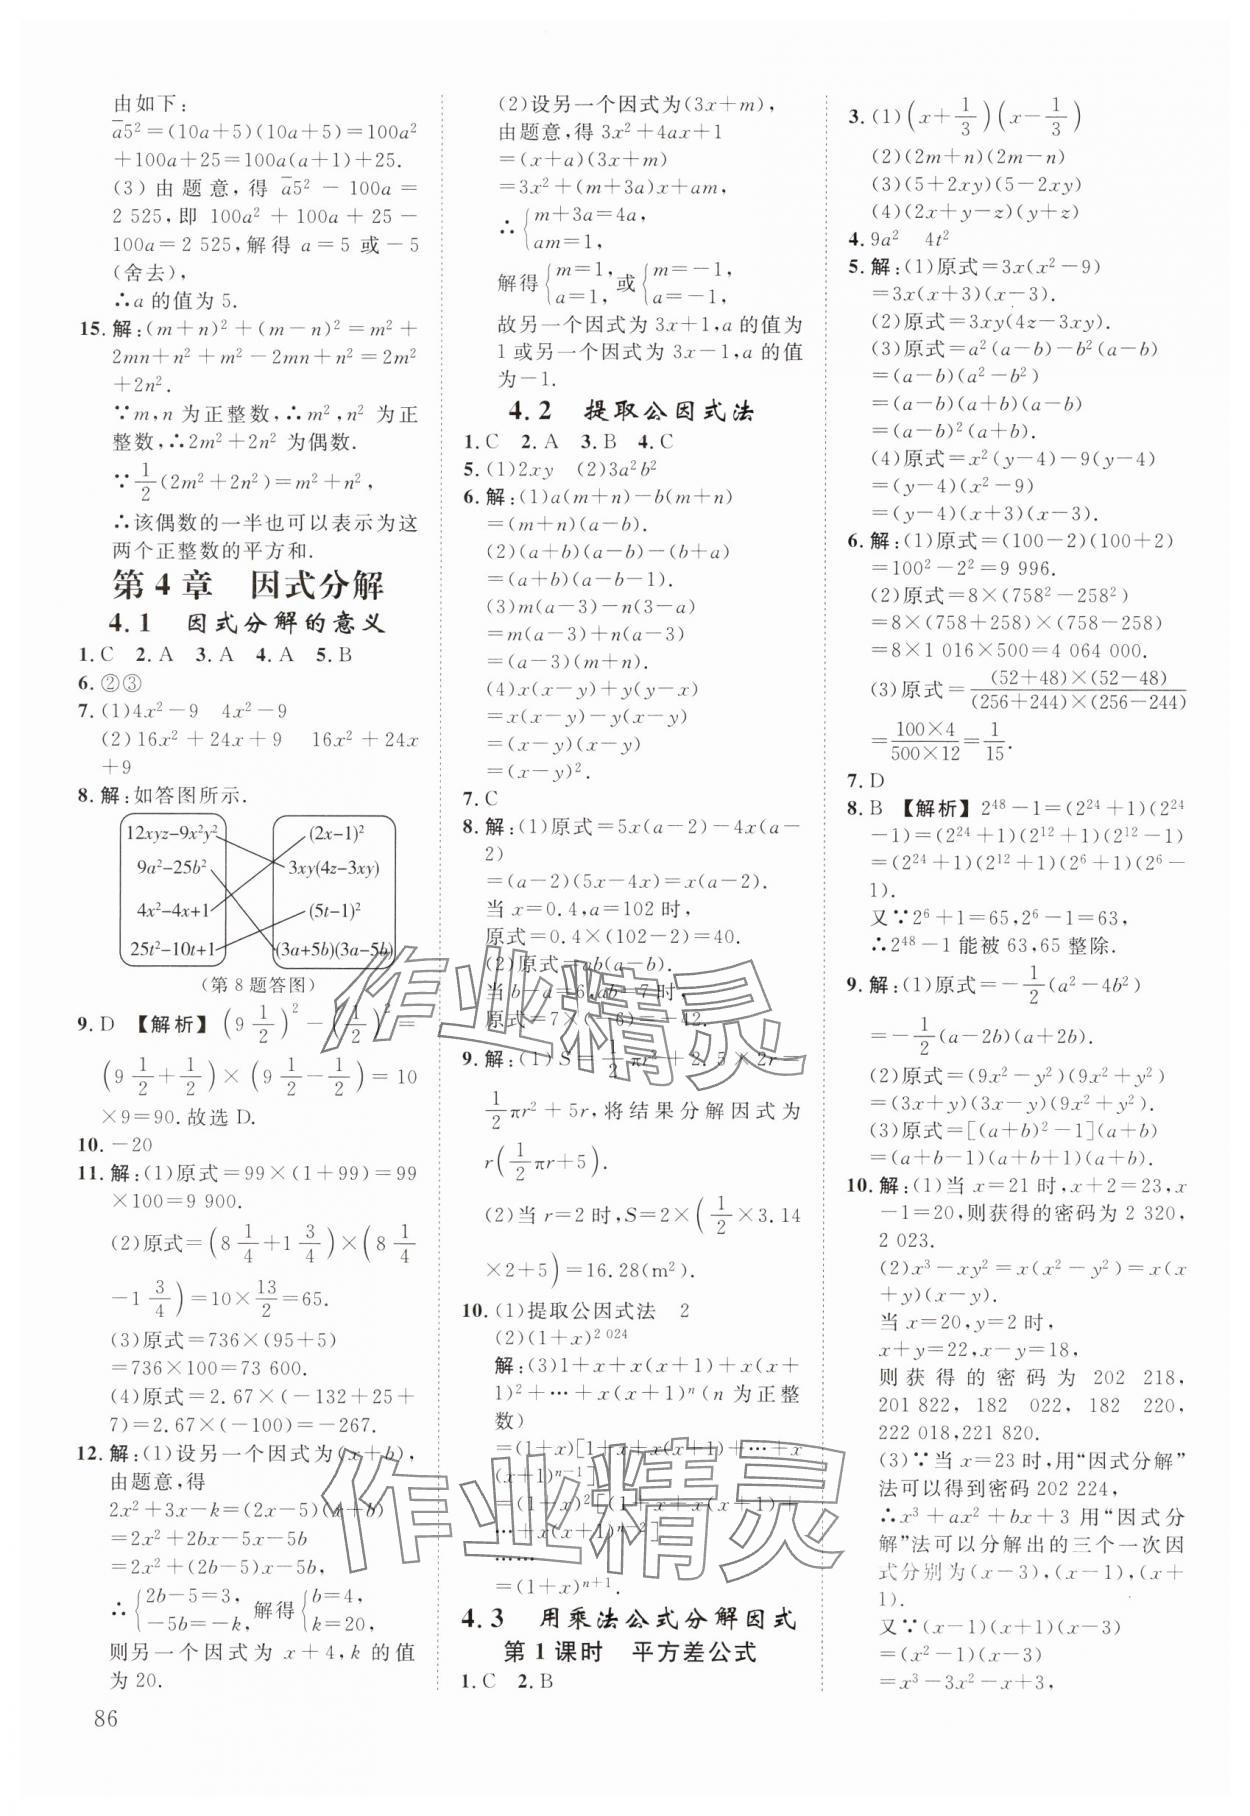 由如下:
a̅5²=(10a+5)(10a+5)=100a²
+100a+25=100a(a+1)+25.
(3)由题意,得 a̅5²-100a=
2 525,即 100a²+100a+25-
100a=2 525,解得 a=5 或-5
(舍去),
∴a 的值为 5.
15.解:(m+n)²+(m-n)²=m²+
2mn+n²+m²-2mn+n²=2m²
+2n².
∵m,n 为正整数,∴m²,n² 为正
整数,∴2m²+2n² 为偶数.
∵1/2(2m²+2n²)=m²+n²,
∴该偶数的一半也可以表示为这
两个正整数的平方和.
第 4 章 因式分解
4.1 因式分解的意义
1.C 2.A 3.A 4.A 5.B
6.②③
7.(1)4x²-9 4x²-9
(2)16x²+24x+9 16x²+24x
+9
8.解:如答图所示.
12xyz-9x²y² (2x-1)²
9a²-25b² 3xy(4z-3xy)
4x²-4x+1 (5t-1)²
25t²-10t+1 (3a+5b)(3a-5b)
(第 8 题答图)
9.D 【解析】(9 1/2)²-(1/2)²=
(9 1/2+1/2)×(9 1/2-1/2)=10
×9=90.故选 D.
10.-20
11.解:(1)原式=99×(1+99)=99
×100=9 900.
(2)原式=(8 1/4+1 3/4)×(8 1/4
-1 3/4)=10×13/2=65.
(3)原式=736×(95+5)
=736×100=73 600.
(4)原式=2.67×(-132+25+
7)=2.67×(-100)=-267.
12.解:(1)设另一个因式为(x+b),
由题意,得
2x²+3x-k=(2x-5)(x+b)
=2x²+2bx-5x-5b
=2x²+(2b-5)x-5b,
∴{2b-5=3, -5b=-k, 解得{b=4, k=20,
则另一个因式为 x+4,k 的值
为 20.
86
(2)设另一个因式为(3x+m),
由题意,得 3x²+4ax+1
=(x+a)(3x+m)
=3x²+(m+3a)x+am,
∴{m+3a=4a, am=1,
解得{m=1, a=1, 或{m=-1, a=-1,
故另一个因式为 3x+1,a 的值为
1 或另一个因式为 3x-1,a 的值
为-1.
4.2 提取公因式法
1.C 2.A 3.B 4.C
5.(1)2xy (2)3a²b²
6.解:(1)a(m+n)-b(m+n)
=(m+n)(a-b).
(2)(a+b)(a-b)-(b+a)
=(a+b)(a-b-1).
(3)m(a-3)-n(3-a)
=m(a-3)+n(a-3)
=(a-3)(m+n).
(4)x(x-y)+y(y-x)
=x(x-y)-y(x-y)
=(x-y)(x-y)
=(x-y)².
7.C
8.解:(1)原式=5x(a-2)-4x(a-
2)
=(a-2)(5x-4x)=x(a-2).
当 x=0.4,a=102 时,
原式=0.4×(102-2)=40.
(2)原式=ab(a-b).
当 b-a=6,ab=7 时,
原式=7×(-6)=-42.
9.解:(1)S=1/2πr²+2.5×2r=
1/2πr²+5r,将结果分解因式为
r(1/2πr+5).
(2)当 r=2 时,S=2×(1/2×3.14
×2+5)=16.28(m²).
10.(1)提取公因式法 2
(2)(1+x)²⁰²⁴
解:(3)1+x+x(x+1)+x(x+
1)²+…+x(x+1)ⁿ(n 为正整
数)
=(1+x)[1+x+x(x+1)+…+x
(x+1)ⁿ⁻¹]
=(1+x)²[1+x+x(x+1)+
…+x(x+1)ⁿ⁻²]
……
=(1+x)ⁿ⁺¹.
4.3 用乘法公式分解因式
第 1 课时 平方差公式
1.C 2.B
3.(1)(x+1/3)(x-1/3)
(2)(2m+n)(2m-n)
(3)(5+2xy)(5-2xy)
(4)(2x+y-z)(y+z)
4.9a² 4t²
5.解:(1)原式=3x(x²-9)
=3x(x+3)(x-3).
(2)原式=3xy(4z-3xy).
(3)原式=a²(a-b)-b²(a-b)
=(a-b)(a²-b²)
=(a-b)(a+b)(a-b)
=(a-b)²(a+b).
(4)原式=x²(y-4)-9(y-4)
=(y-4)(x²-9)
=(y-4)(x+3)(x-3).
6.解:(1)原式=(100-2)(100+2)
=100²-2²=9 996.
(2)原式=8×(758²-258²)
=8×(758+258)×(758-258)
=8×1 016×500=4 064 000.
(3)原式=(52+48)×(52-48)/(256+244)×(256-244)
=100×4/500×12=1/15.
7.D
8.B 【解析】2⁴⁸-1=(2²⁴+1)(2²⁴
-1)=(2²⁴+1)(2¹²+1)(2¹²-1)
=(2²⁴+1)(2¹²+1)(2⁶+1)(2⁶-
1).
又∵2⁶+1=65,2⁶-1=63,
∴2⁴⁸-1 能被 63,65 整除.
9.解:(1)原式=-1/2(a²-4b²)
=-1/2(a-2b)(a+2b).
(2)原式=(9x²-y²)(9x²+y²)
=(3x+y)(3x-y)(9x²+y²).
(3)原式=[(a+b)²-1](a+b)
=(a+b-1)(a+b+1)(a+b).
10.解:(1)当 x=21 时,x+2=23,x
-1=20,则获得的密码为 2 320,
2 023.
(2)x³-xy²=x(x²-y²)=x(x
+y)(x-y).
当 x=20,y=2 时,
x+y=22,x-y=18,
则获得的密码为 202 218,
201 822,182 022,182 220,
222 018,221 820.
(3)∵当 x=23 时,用“因式分解”
法可以得到密码 202 224,
∴x³+ax²+bx+3 用“因式分
解”法可以分解出的三个一次因
式分别为(x-3),(x-1),(x+
1).
又∵(x-1)(x+1)(x-3)
=(x²-1)(x-3)
=x³-3x²-x+3,
作业精灵
作业精灵